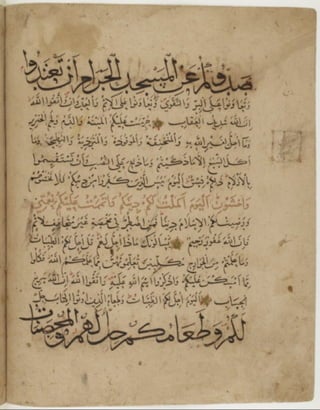 صدوكم عن المسجد الحرام أن تعتدوا
وتعاونوا على البر والتقوى ولا تعاونوا على الإثم والعدوان واتقوا الله
إن الله شديد العقاب حرمت عليكم الميتة والدم ولحم الخنزير
وما أهل لغير الله به والمنخنقة والموقوذة والمتردية والنطيحة وما
أكل السبع إلا ما ذكيتم وما ذبح على النصب وأن تستقسموا
بالأزلام ذلكم فسق اليوم يئس الذين كفروا من دينكم فلا تخشوهم
واخشون اليوم أكملت لكم دينكم وأتممت عليكم نعمتي
ورضيت لكم الإسلام دينا فمن اضطر في مخمصة غير متجانف لإثم
فإن الله غفور رحيم يسئلونك ماذا أحل لهم قل أحل لكم الطيبات
وما علمتم من الجوارح مكلبين تعلمونهن مما علمكم الله فكلوا
مما أمسكن عليكم واذكروا اسم الله عليه واتقوا الله إن الله سريع
الحساب اليوم أحل لكم الطيبات وطعام الذين أوتوا الكتاب حل
لكم وطعامكم حل لهم والمحصنات